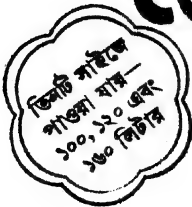 তিনটি সাইজে
পাওয়া যায়—
১০০, ১২০ এবং
১৬০ লিটার